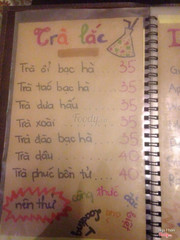 Trà lắc
Trà ổi bạc hà 35
Trà táo bạc hà 35
Trà dưa hấu 35
Trà xoài 35
Trà đào bạc hà 35
Trà dâu 40
Trà phúc bồn tử ... 40
nên thử
công thức
đặc biệt